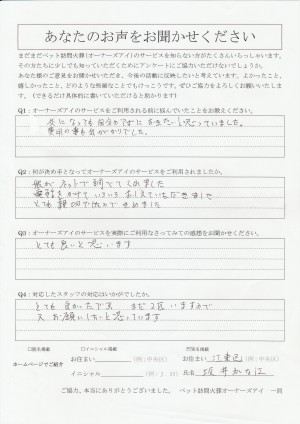 あなたのお声をお聞かせください
まだまだペット訪問火葬(オーナーズアイ)のサービスを知らない方がたくさんいらっしゃいます。
その方たちに少しでも知っていただくためにアンケートにご協力いただけないでしょうか。
あなた様のご意見をお聞かせいただき、今後の活動に反映したいと考えています。よかったこと、
嬉しかったこと、どのような些細なことでもけっこうです。ぜひご協力をよろしくお願いいたし
ます。(できるだけ具体的に書いていただけると助かります)
Q1:オーナーズアイのサービスをご利用される前に悩んでいたことをお教えください。
になっても自分のそばにおきたいと思っていました。
費用の事も気がかりでした。
Q2:何が決め手となってオーナーズアイのサービスをご利用されましたか。
娘がネットで調べてくれました
電話をかけていろいろおしえていただきました
とても親切だったのできめました
Q3:オーナーズアイのサービスを実際にご利用なさってみての感想をお聞かせください。
とても良いと思います
Q4:対応したスタッフの対応はいかがでしたか。
とても良かったです まだ2匹いますので
又お願いしたいと思っています
□匿名掲載 □イニシャル掲載
ホームページでご紹介
お住まい (例:中央区) お住まい 江東区 (例:中央区)
イニシャル (例:J.M) 氏名
ご協力、本当にありがとうございました。 ペット訪問火葬オーナーズアイ 一同